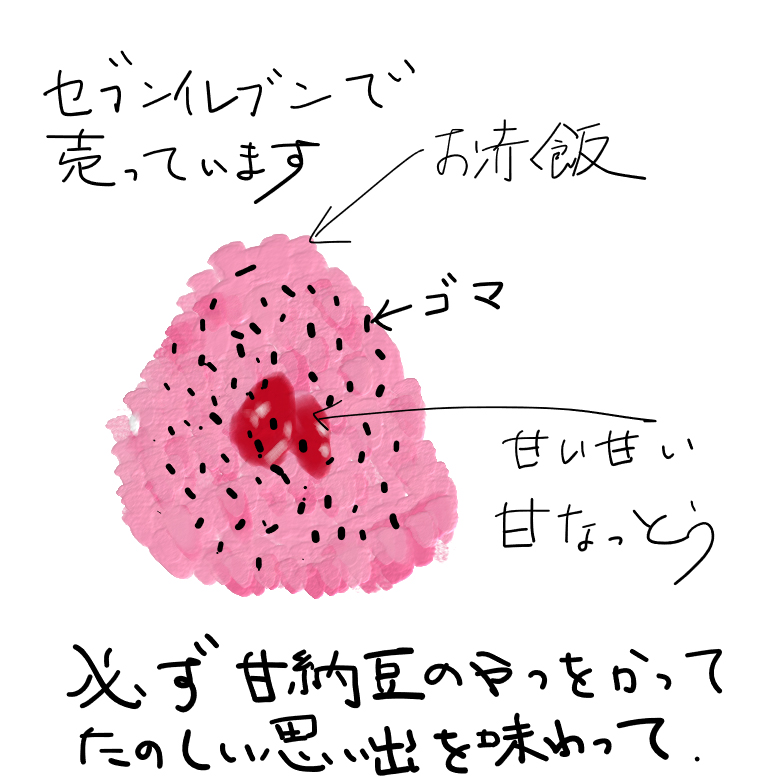 セブンイレブンで
売っています
お赤飯
ゴマ
甘い甘い
甘なっとう
必ず甘納豆のやつをかって
たのしい思い出を味わって.